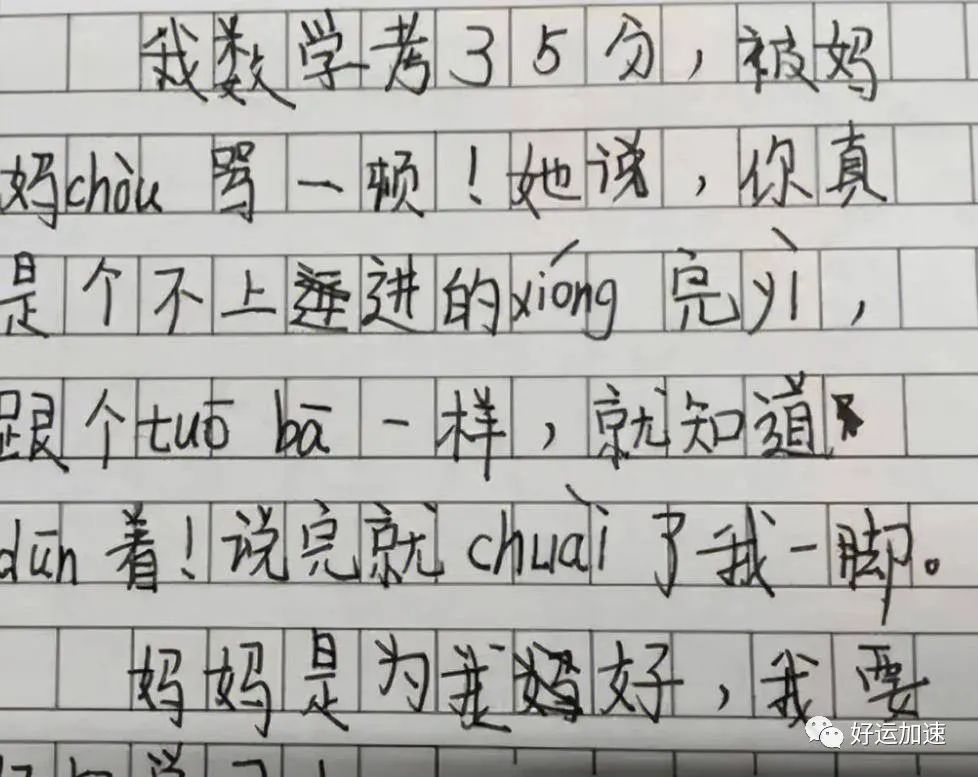 我数学考35分，被妈
妈chòu骂一顿！她说，你真
是个不上进的xióng完yì，
跟个tuō bā一样，就知道
dūn着！说完就chuài了我一脚。
妈妈是为我好，我要
学习！
好运加速